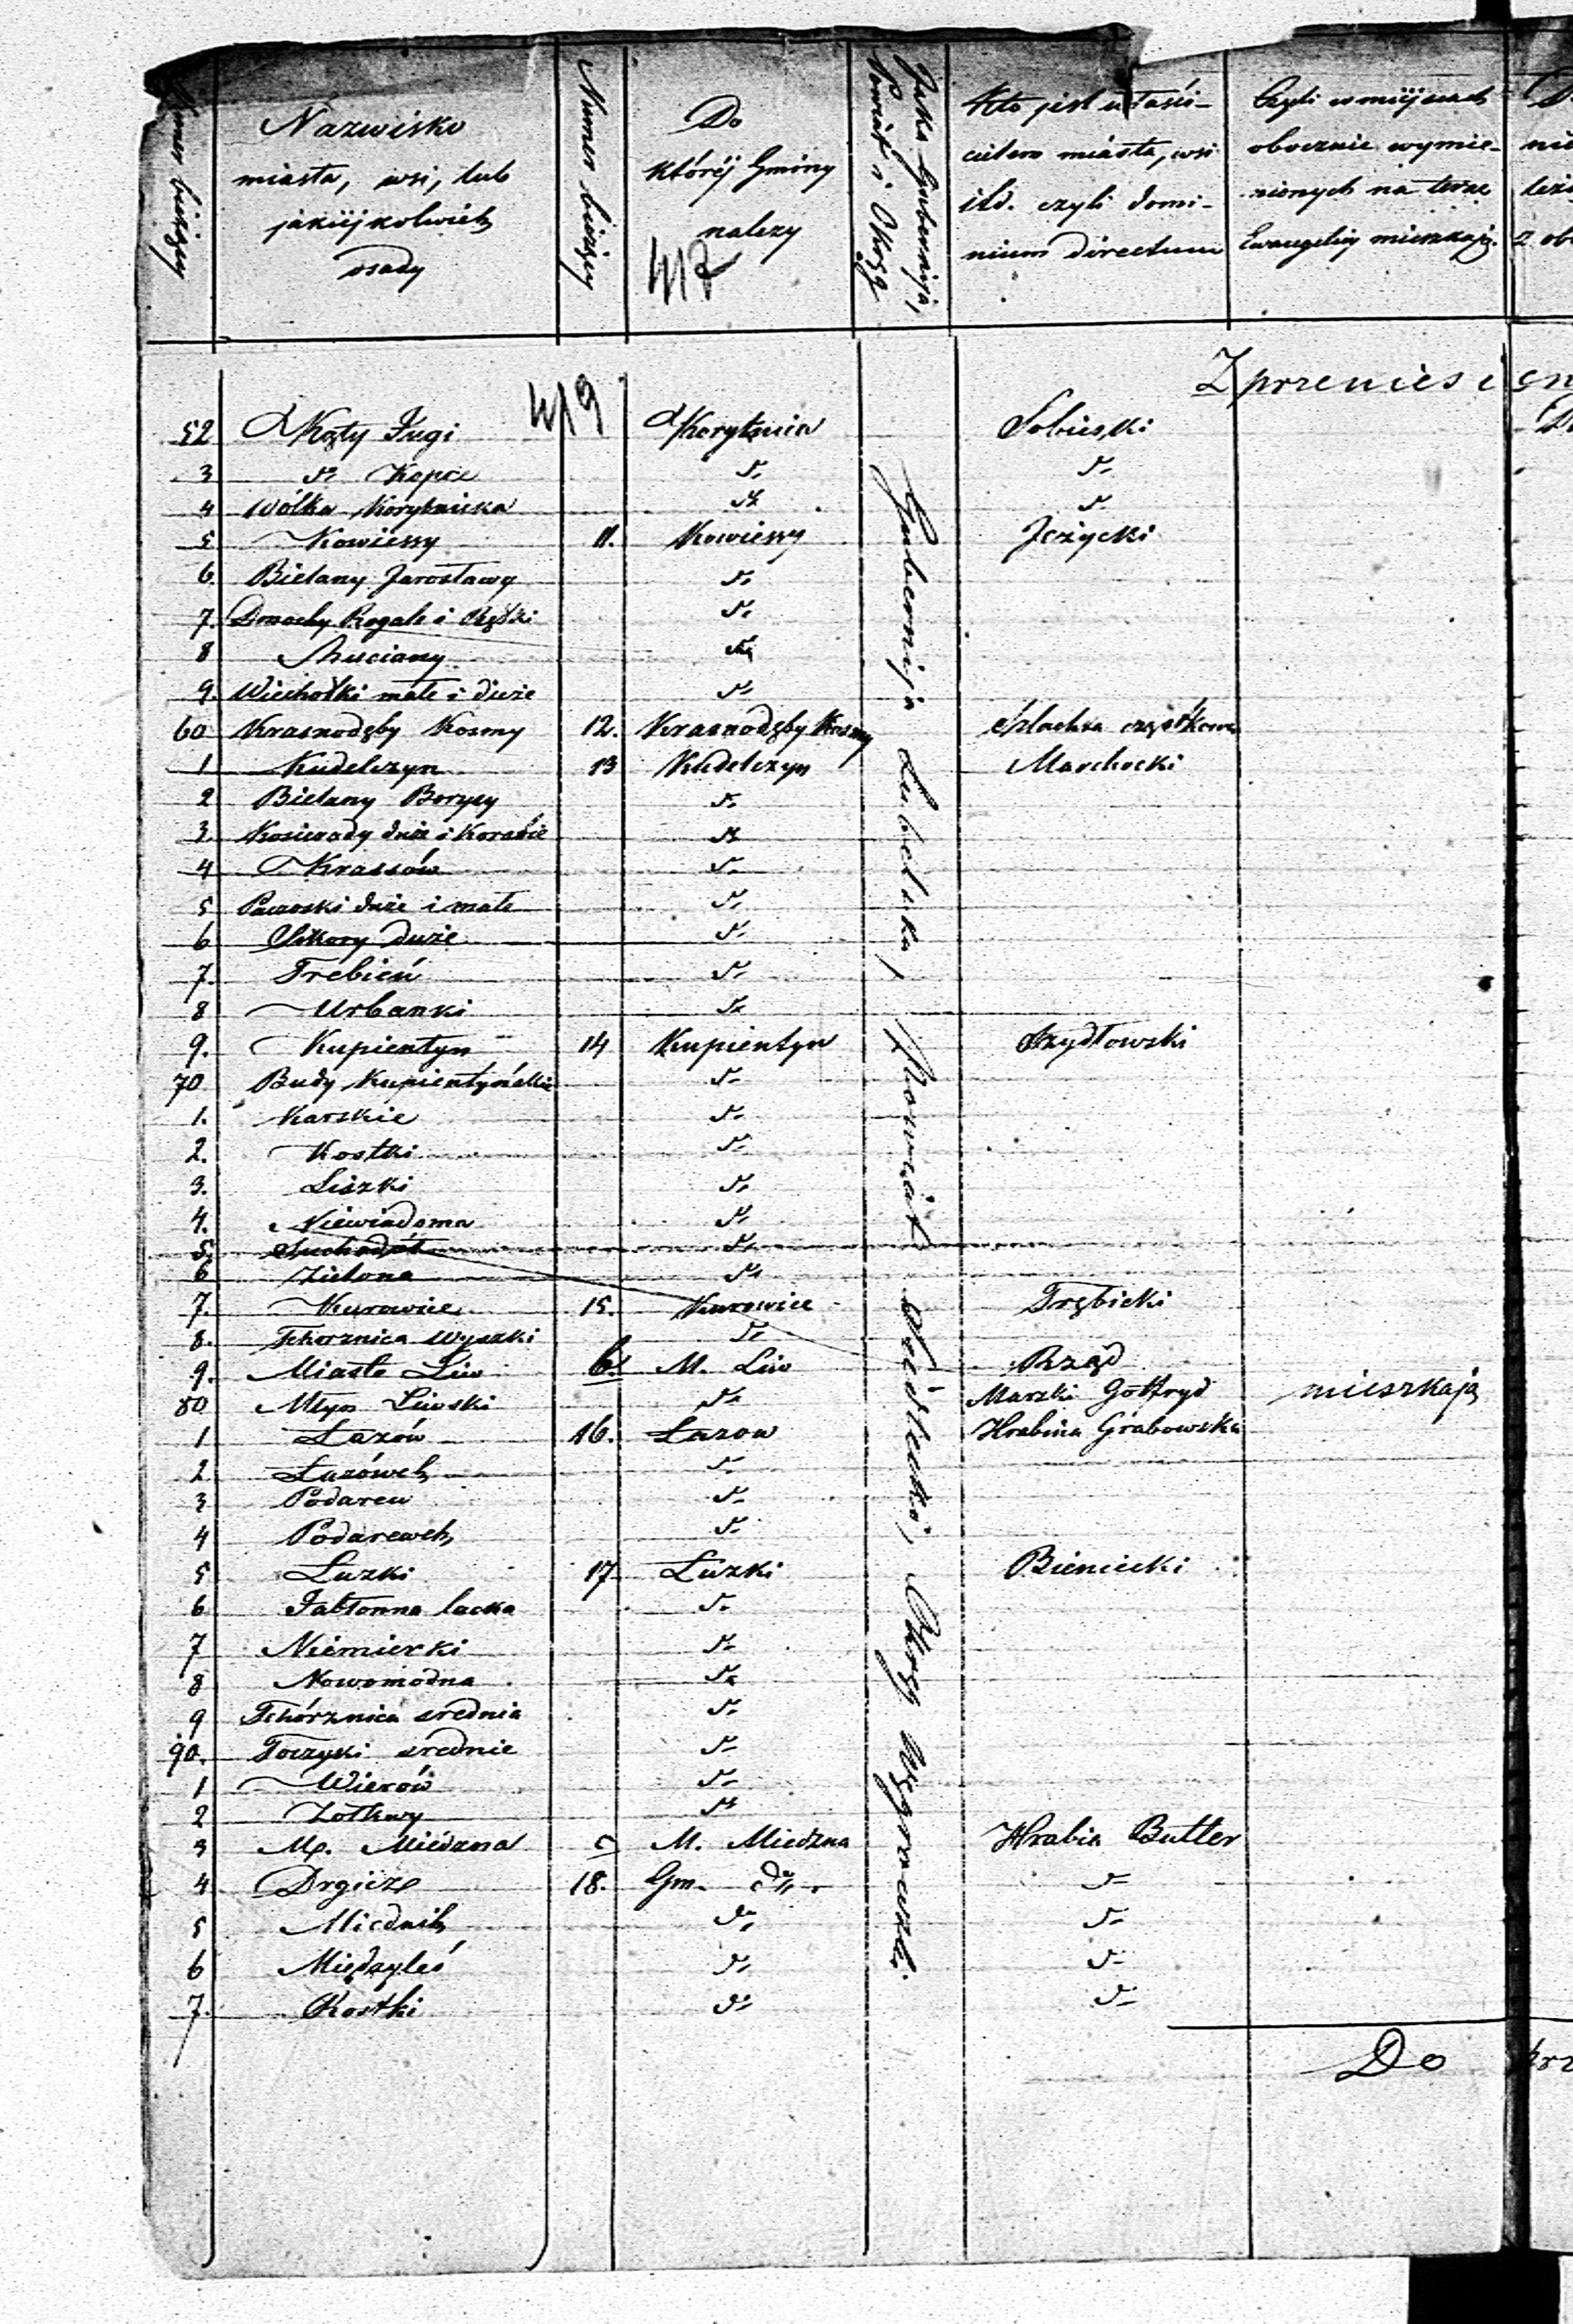 Numer bieżący
Nazwisko
miasta, wsi, lub
jakiejkolwiek
osady
Numer bieżący
Do
któréj Gminy
należy
417
Jaka Gubernija,
Powiat i Okrąg
Kto jest właści-
cielem miasta, wsi
itd. czyli domi-
nium directum
Czyli w miejscach
obocznie wymie-
nionych na teraz
Ewangelicy mieszkają.
Z przeniesien
419
52 Kąty Ługi Korytnica Sobieski
3 d° Kopce d° d°
4 Wólka Korytnicka d° d°
5 Kowiessy 11. Kowiessy Jeżycki
6. Bielany Jarosławy d°
7. Dmochy Rogale i Rętki d°
8 Ruciany d°
9. Wiechotki małe i duże d°
60 Krasnodęby Kosmy 12. Krasnodęby Kosmy Szlachta cząstkowa
1 Kudelczyn 13 Kudelczyn Marchocki
2 Bielany Borysy d°
3. Kosierady duże i Korabie d°
4 Krassów d°
5 Paczoski duże i małe d°
6 Sikory duże d°
7. Trebień d°
8 Urbanki d°
9. Kupientyn 14 Kupientyn Szydłowski
70 Budy Kupientyńskie d°
1. Karskie d°
2. Kostki d°
3. Liszki d°
4. Niewiadoma d°
5. Suchodół d°
6 Zielona d°
7. Kurowice 15. Kurowice Trębicki
8. Tchorznica Wyszki d°
9. Miasto Liw 6. M. Liw Rząd
80 Młyn Liwski d° Marzki Gotfryd mieszkają
1 Łazów 16. Łazow Hrabina Grabowska
2 Łazówek d°
3 Podarew d°
4 Podarewek d°
5 Luzki 17 Luzki Bieniecki
6 Jabłonna lacka d°
7 Niemierki d°
8 Nowomodna d°
9 Tchórznica srednia d°
90. Toczyki srednie d°
1 Wierów d°
2 Zołkwy d°
3 M. Miedzna 7 M. Miedzna Hrabia Butler
4 Drgicz 18. Gm. d° d°
5 Miednik d° d°
6 Międzyleś d° d°
7. Rostki d° d°
Gubernija Lubelska, Powiat Siedlecki, Okrąg Węgrowski.
Do prz